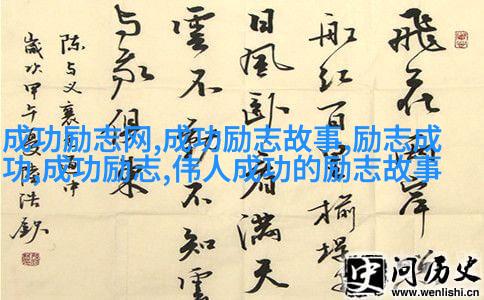 飛花兩岸
船红百里榆堤
日風卧看满天
雲不動不知雲
与我俱東
陈与义襄邑道中
歲次甲午夏陸浩
成功励志网,成功励志故事,励志成
功,成功励志,伟人成功的励志故事
史问历史
www.wenlishi.cn